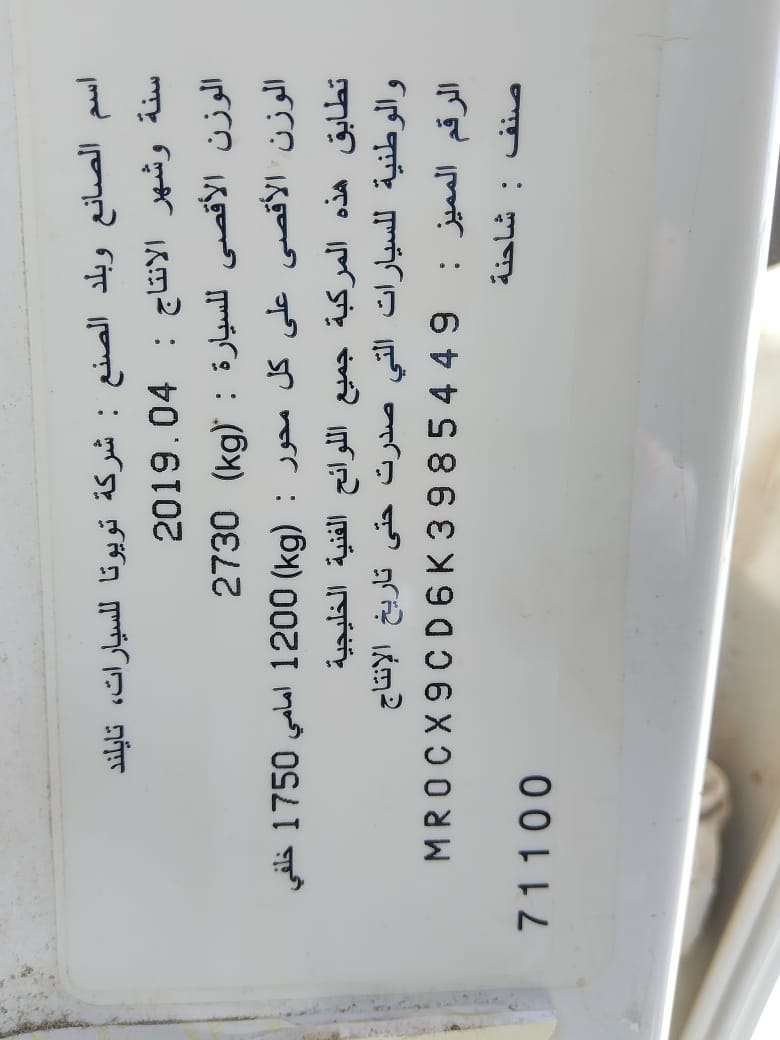 اسم الصانع وبلد الصنع : شركة تويوتا للسيارات، تايلند
سنة وشهر الانتاج : 2019.04
الوزن الأقصى للسيارة : 2730 (kg)
الوزن الأقصى على كل محور : (kg) 1200 امامي 1750 خلفي
تطابق هذه المركبة جميع اللوائح الفنية الخليجية
والوطنية للسيارات التي صدرت حتى تاريخ الإنتاج
الرقم المميز : MR0CX9CD6K3985449
صنف : شاحنة
71100